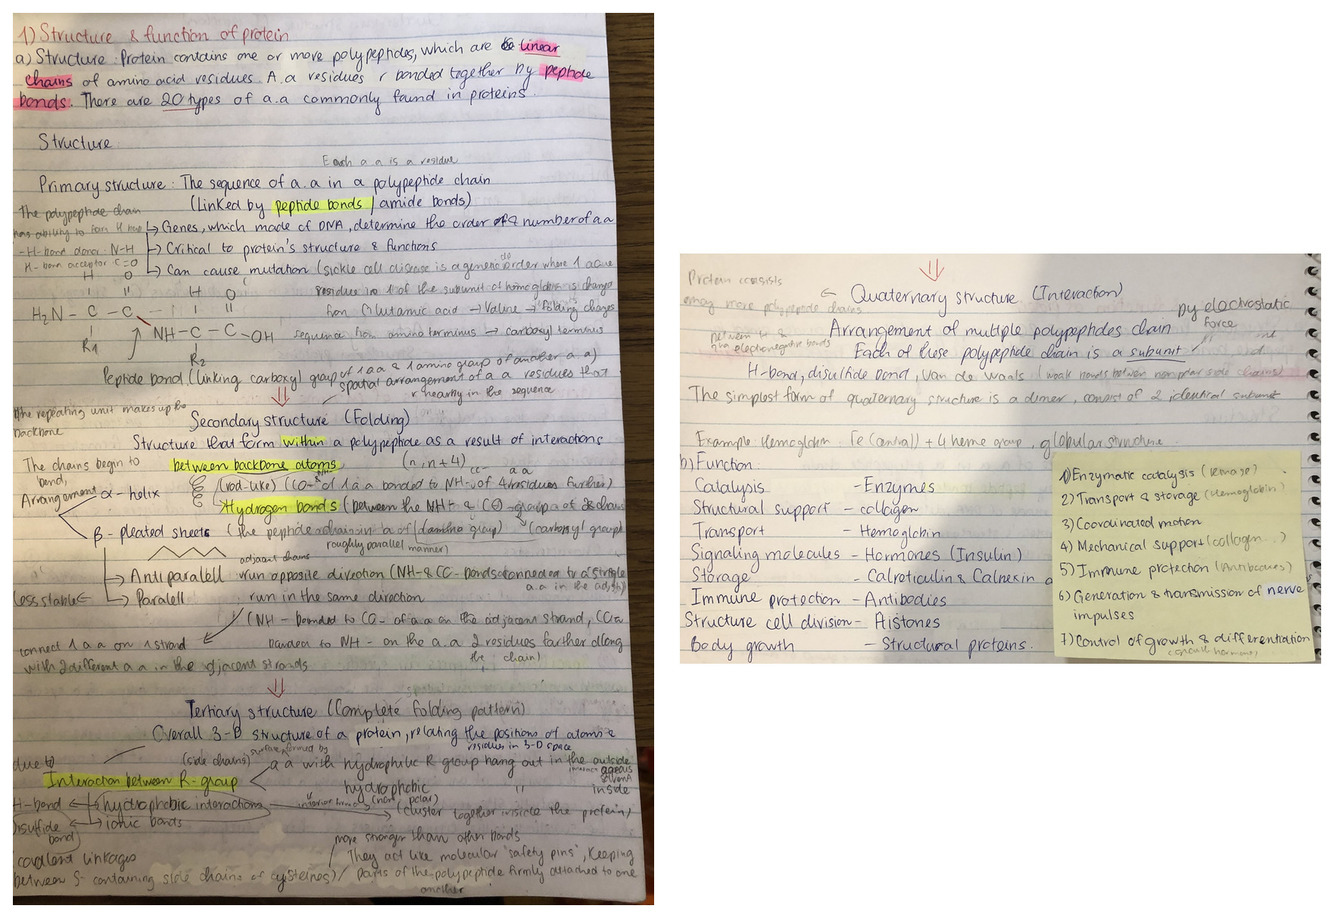 1) Structure & function of protein
a) Structure: Protein contains one or more polypeptides, which are linear
chains of amino acid residues. A.a residues r bonded together by peptide
bonds. There are 20 types of a.a commonly found in proteins.
Structure
Each a.a is a residue
Primary structure: The sequence of a.a in a polypeptide chain
(Linked by peptide bonds / amide bonds)
The polypeptide chain
has ability to form H bond
- H-bond donor N-H
H-bond acceptor C=O
Genes, which made of DNA, determine the order of & number of a.a
Critical to protein's structure & functions
Can cause mutation (sickle cell disease is a genetic disorder where 1 a.a
residue in 1 of the subunit of hemoglobin is change
from Glutamic acid → Valine → folding changes
H O
H2N - C - C
R1
H O
NH - C - C - OH
R2
sequence from amino terminus → carboxyl terminus
Peptide bond (linking carboxyl group of 1 a.a & 1 amino group of another a.a)
spatial arrangement of a.a residues that
r nearby in the sequence
the repeating unit makes up the
backbone
Secondary structure (Folding)
Structure that form within a polypeptide as a result of interactions
between backbone atoms (n, n+4)
The chains begin to
bend,
Arrangement
α-helix (rod-like) (CO- of 1 a.a bonded to NH- of 4 residues further)
Hydrogen bonds (between the NH- & CO-group
β-pleated sheets (the peptide chain (amino group) (carboxyl group)
roughly parallel manner)
adjacent chains
Antiparalell run opposite direction (NH- & CO- bonds connected to a single
a.a in the adj
less stable ← Paralell run in the same direction
(NH- bonded to CO- of a.a on the adjacent strand, CO-
bonded to NH- on the a.a 2 residues farther along
the chain)
connect 1 a.a on 1 strand
with 2 different a.a in the adjacent strands
Tertiary structure (Complete folding pattern)
Overall 3-D structure of a protein, relating the positions of atoms &
residues in 3-D space
due to
(side chains) surface formed by a.a with hydrophilic R group hang out in the outside
aqeous
solvent
Interaction between R-group
hydrophobic " inside
H-bond ← hydrophobic interactions (non polar) (cluster together inside the protein)
disulfide ← ionic bonds
bond
more stronger than other bonds
covalent linkages They act like molecular "safety pins", keeping
between S- containing side chains of cysteines) parts of the polypeptide firmly attached to one
another
Protein consists
many more polypeptide chains
← Quaternary structure (Interaction)
Arrangement of multiple polypeptides chain
by electrostatic
force
between
electronegative bonds
Each of these polypeptide chain is a subunit
H-bond, disulfide bond, Van de Waals (weak bonds between nonpolar side chains)
The simplest form of quaternary structure is a dimer, consist of 2 identical subunit
Example: Hemoglobin: Fe (central) + 4 heme group, globular structure.
b) Function
Catalysis - Enzymes
Structural support - collagen
Transport - Hemoglobin
Signaling molecules - Hormones (Insulin)
Storage - Calroticulin & Calnexin
Immune protection - Antibodies
Structure cell division - Aistones
Body growth - Structural proteins.
1) Enzymatic catalysis
2) Transport & storage (Hemoglobin)
3) Coordinated motion
4) Mechanical support (collagen...)
5) Immune protection (Antibodies)
6) Generation & transmission of nerve
impulses
7) Control of growth & differentiation
(growth hormone)